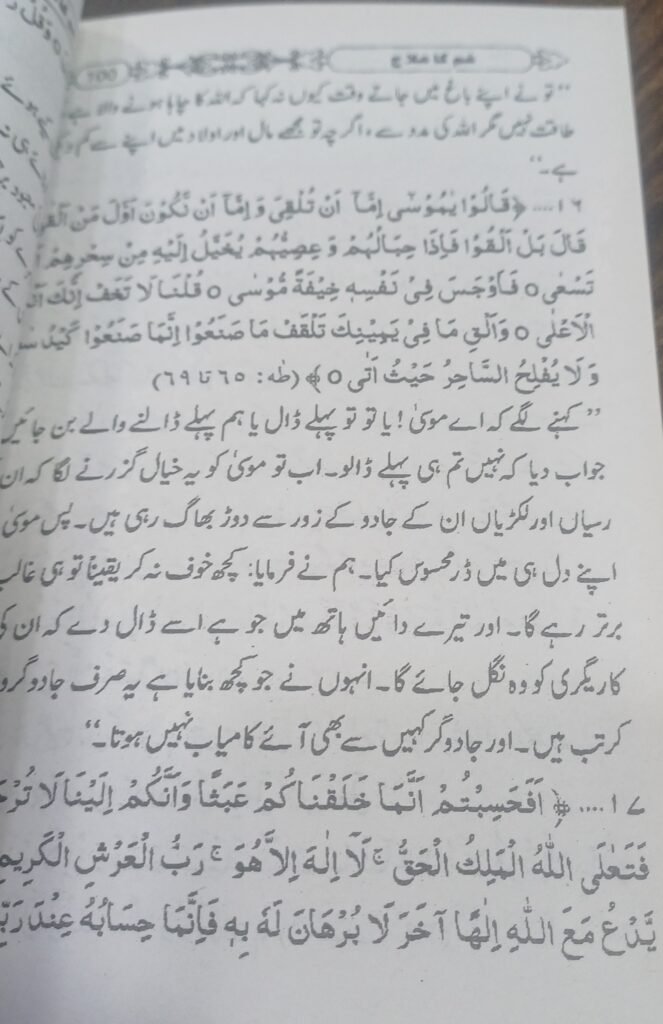 غم کا علاج
100
”تو نے اپنے باغ میں جاتے وقت کیوں نہ کہا کہ اللہ کا چاہا ہونے والا ہے
طاقت نہیں مگر اللہ کی مدد سے، اگرچہ تو مجھے مال اور اولاد میں اپنے سے کم دیکھ
ہے۔“
١٦....﴿قَالُوْا يٰمُوْسٰٓى اِمَّآ اَنْ تُلْقِىَ وَ اِمَّآ اَنْ نَّكُوْنَ اَوَّلَ مَنْ اَلْقٰى
قَالَ بَلْ اَلْقُوْا فَاِذَا حِبَالُهُمْ وَ عِصِيُّهُمْ يُخَيَّلُ اِلَيْهِ مِنْ سِحْرِهِمْ
تَسْعٰى ٥ فَاَوْجَسَ فِىْ نَفْسِهٖ خِيْفَةً مُّوْسٰى ٥ قُلْنَا لَا تَخَفْ اِنَّكَ
الْاَعْلٰى ٥ وَاَلْقِ مَا فِىْ يَمِيْنِكَ تَلْقَفْ مَا صَنَعُوْا اِنَّمَا صَنَعُوْا كَيْدُ
وَ لَا يُفْلِحُ السَّاحِرُ حَيْثُ اَتٰى ٥﴾ (طه: ٦٥ تا ٦٩)
”کہنے لگے کہ اے موسیٰ! یا تو تو پہلے ڈال یا ہم پہلے ڈالنے والے بن جائیں
جواب دیا کہ نہیں تم ہی پہلے ڈالو۔ اب تو موسیٰ کو یہ خیال گزرنے لگا کہ ان
رسیاں اور لکڑیاں ان کے جادو کے زور سے دوڑ بھاگ رہی ہیں۔ پس موسیٰ
اپنے دل ہی میں ڈر محسوس کیا۔ ہم نے فرمایا: کچھ خوف نہ کر یقیناً تو ہی غالب
برتر رہے گا۔ اور تیرے دائیں ہاتھ میں جو ہے اسے ڈال دے کہ ان کی
کاریگری کو وہ نگل جائے گا۔ انہوں نے جو کچھ بنایا ہے یہ صرف جادوگرو
کرتب ہیں۔ اور جادوگر کہیں سے بھی آئے کامیاب نہیں ہوتا۔“
١٧....﴿ اَفَحَسِبْتُمْ اَنَّمَا خَلَقْنَاكُمْ عَبَثًا وَاَنَّكُمْ اِلَيْنَا لَا
فَتَعٰلَى اللّٰهُ الْمَلِكُ الْحَقُّ ۚ لَآ اِلٰهَ اِلَّا هُوَ ۚ رَبُّ الْعَرْشِ الْكَرِيْمِ
يَّدْعُ مَعَ اللّٰهِ اِلٰهًا آخَرَ لَا بُرْهَانَ لَهٗ بِهٖ فَاِنَّمَا حِسَابُهٗ عِنْدَ